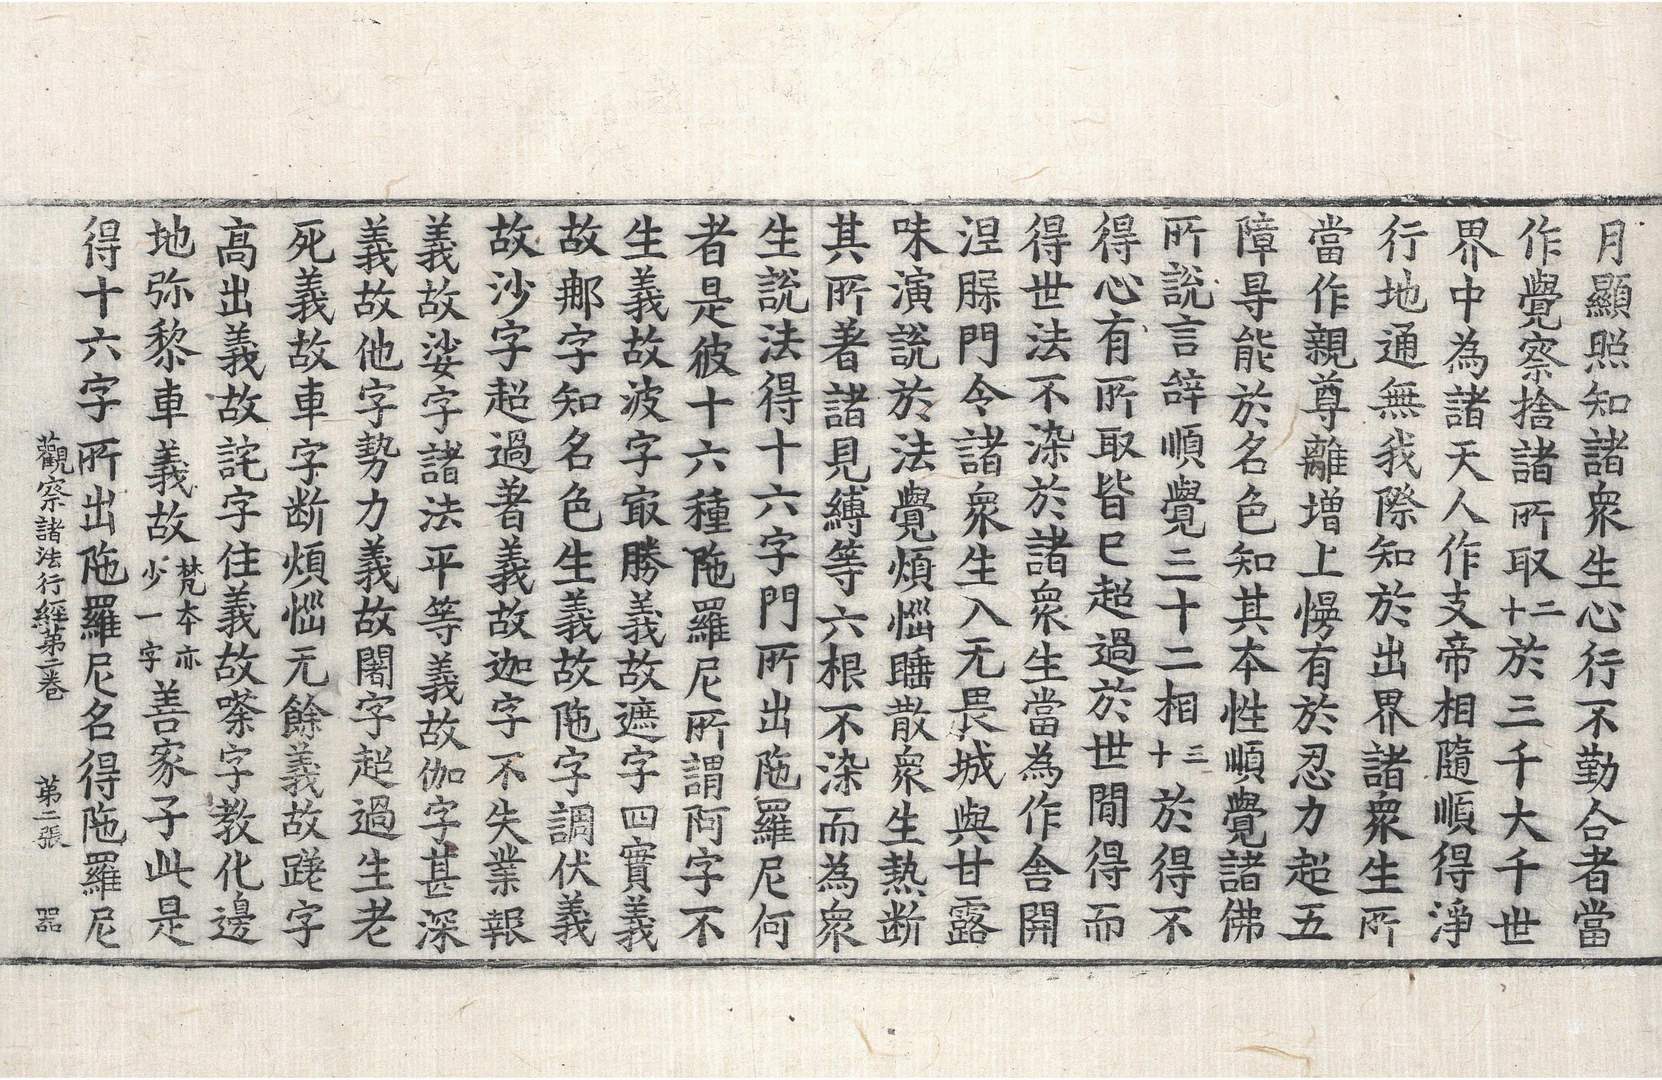 月顯照知諸衆生心行不勤合者當
作覺察捨諸所取二十於三千大千世
界中為諸天人作支帝相隨順得淨
行地通無我際知於出界諸衆生所
當作親尊離增上慢有於忍力超五
障㝵能於名色知其本性順覺諸佛
所說言辝順覺三十二相三十於得不
得心有所取皆已超過於世間得而
得世法不染於諸衆生當為作舍開
涅槃門令諸衆生入无畏城與甘露
味演說於法覺煩惱睡散衆生熱断
其所著諸見縛等六根不染而為衆
生說法得十六字門所出陁羅尼何
者是彼十六種陁羅尼所謂阿字不
生義故波字㝡勝義故遮字四實義
故那字知名色生義故陁字調伏義
故沙字超過著義故迦字不失業報
義故娑字諸法平等義故伽字甚深
義故他字勢力義故闍字超過生老
死義故車字断煩惱无餘義故蹉字
高出義故詫字住義故嗏字教化邊
地弥黎車義故梵本亦少一字善家子此是
得十六字所出陁羅尼名得陁羅尼
觀察諸法行經第二卷 第二張 器